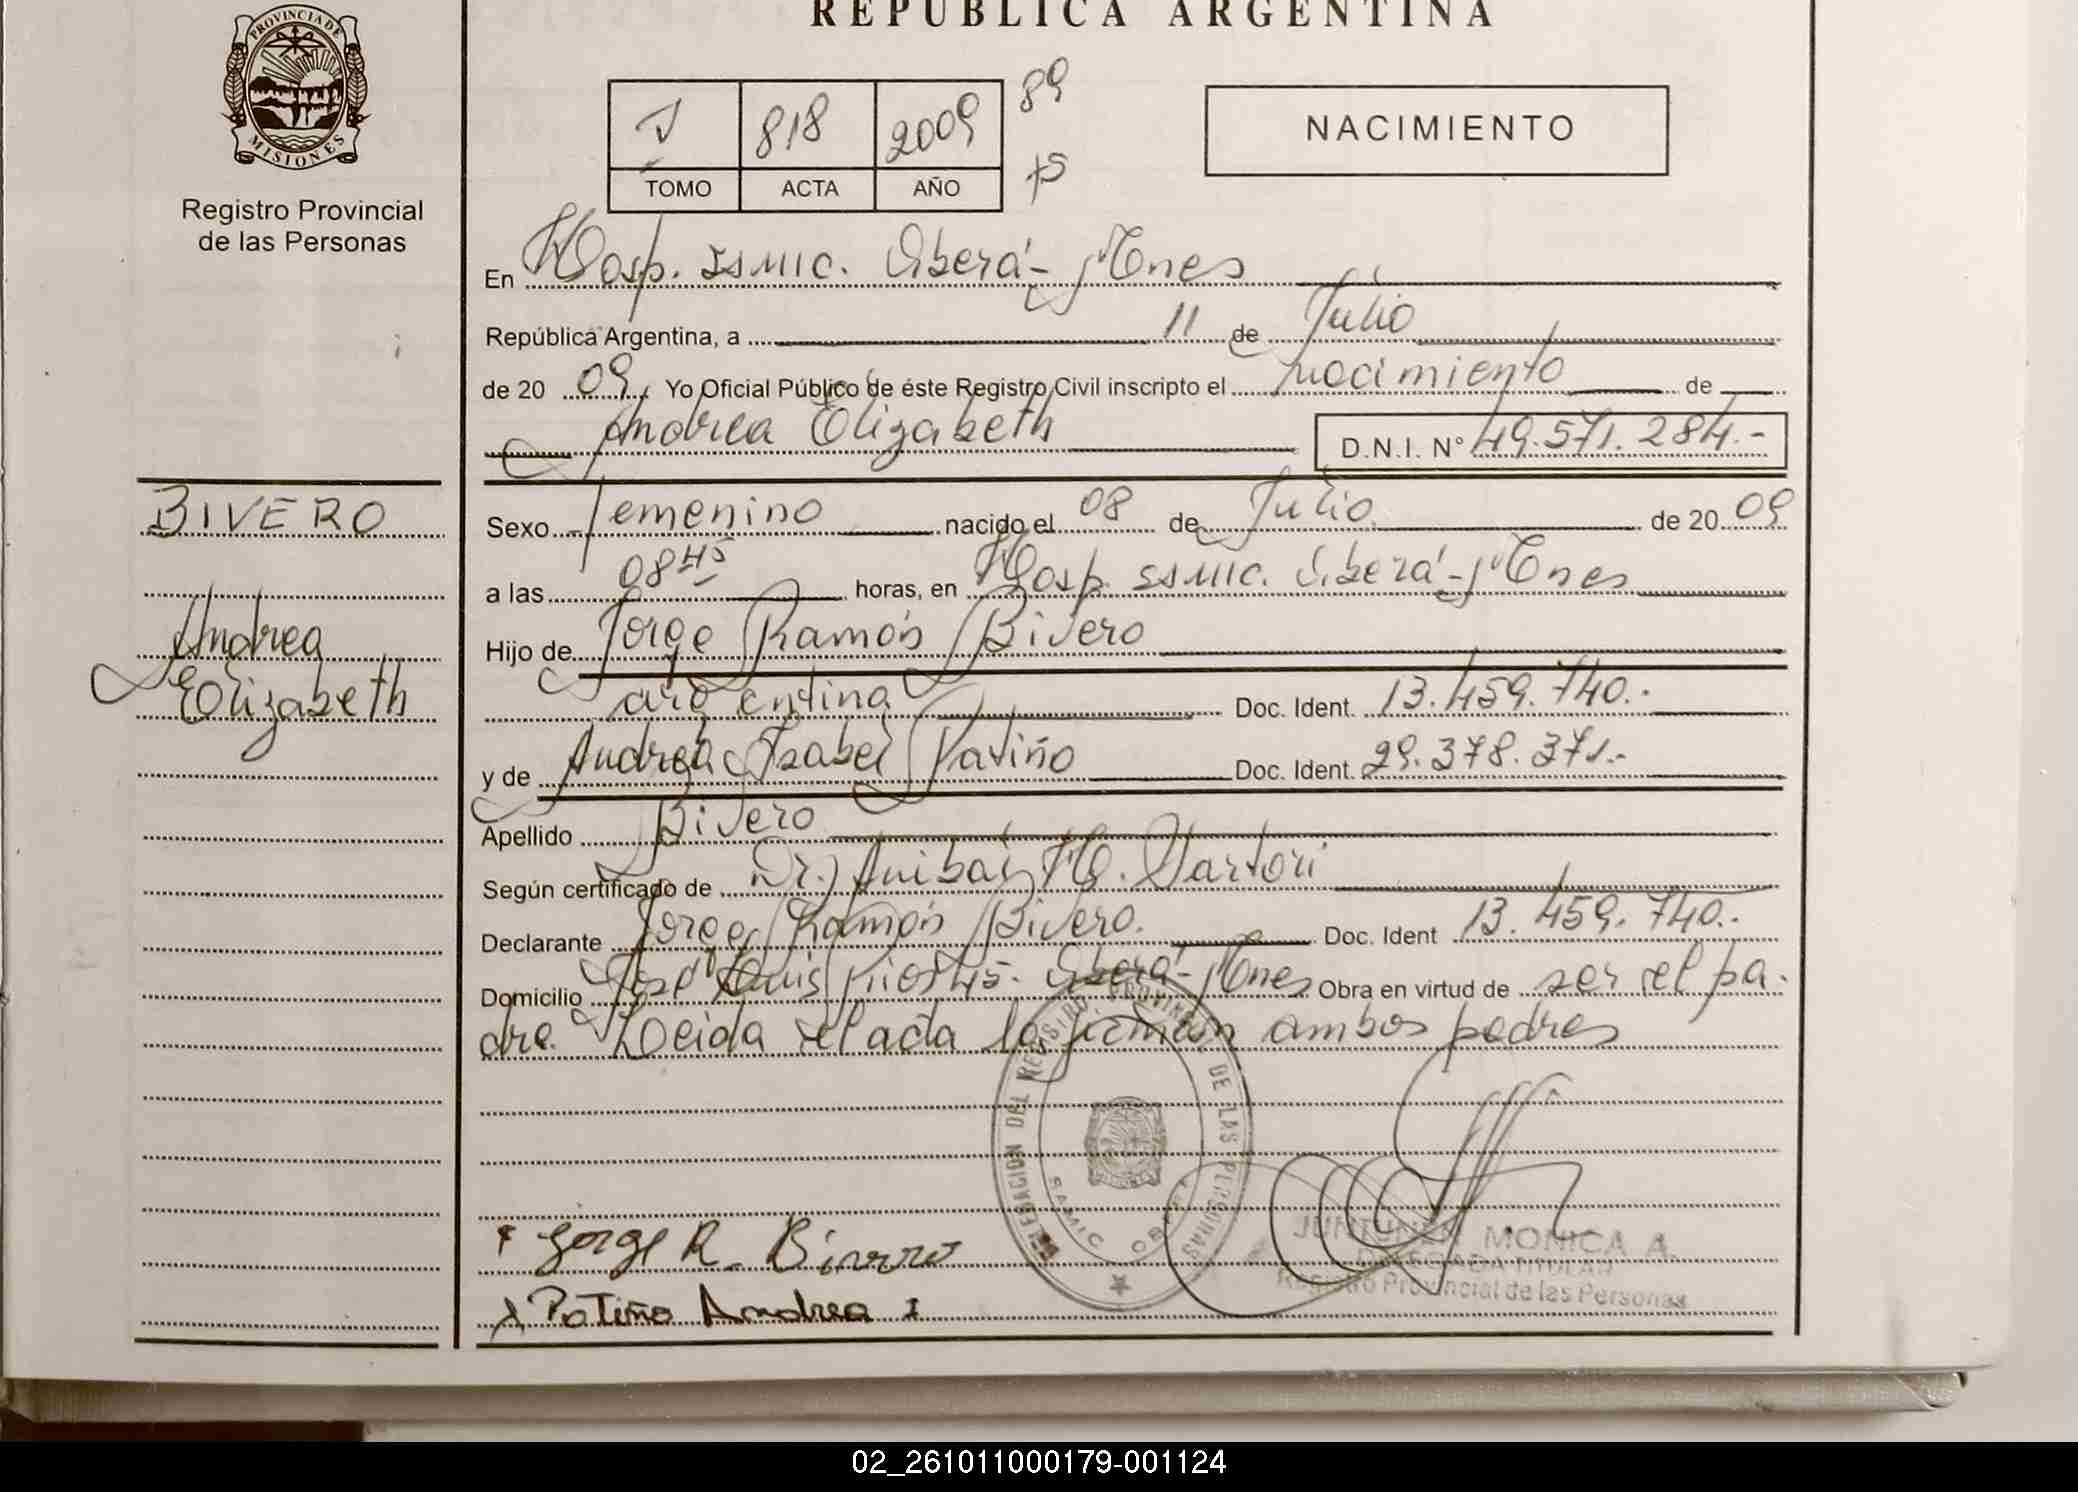 REPUBLICA ARGENTINA
PROVINCIA DE MISIONES
Registro Provincial
de las Personas
I 818 2009 89
TOMO ACTA AÑO
NACIMIENTO
En Hosp. SAMIC. Oberá - Mnes
República Argentina, a 11 de Julio
de 20 09, Yo Oficial Público de éste Registro Civil inscripto el nacimiento de
Andrea Elizabeth D.N.I. N° 49.571.284.-
BIVERO
Andrea
Elizabeth
Sexo Femenino nacido el 08 de Julio de 20 09
a las 08 45 horas, en Hosp. SAMIC. Oberá - Mnes
Hijo de Jorge Ramón Bivero
argentina Doc. Ident. 13.459.740.-
y de Andrea Isabel Patiño Doc. Ident. 29.378.371.-
Apellido Bivero
Según certificado de Dr. Anibal H. Sartori
Declarante Jorge Ramón Bivero. Doc. Ident 13.459.740.-
Domicilio José Luis Oberá - Mnes Obra en virtud de ser el pa-
dre. Leida el acta la firman ambos padres
DELEGACION DEL REGISTRO PROVINCIAL DE LAS PERSONAS
SAMIC OBERA
Jorge R. Bivero
Patiño Andrea I
JUNTUNEN MONICA A.
DELEGADA TITULAR
Registro Provincial de las Personas
02_261011000179-001124